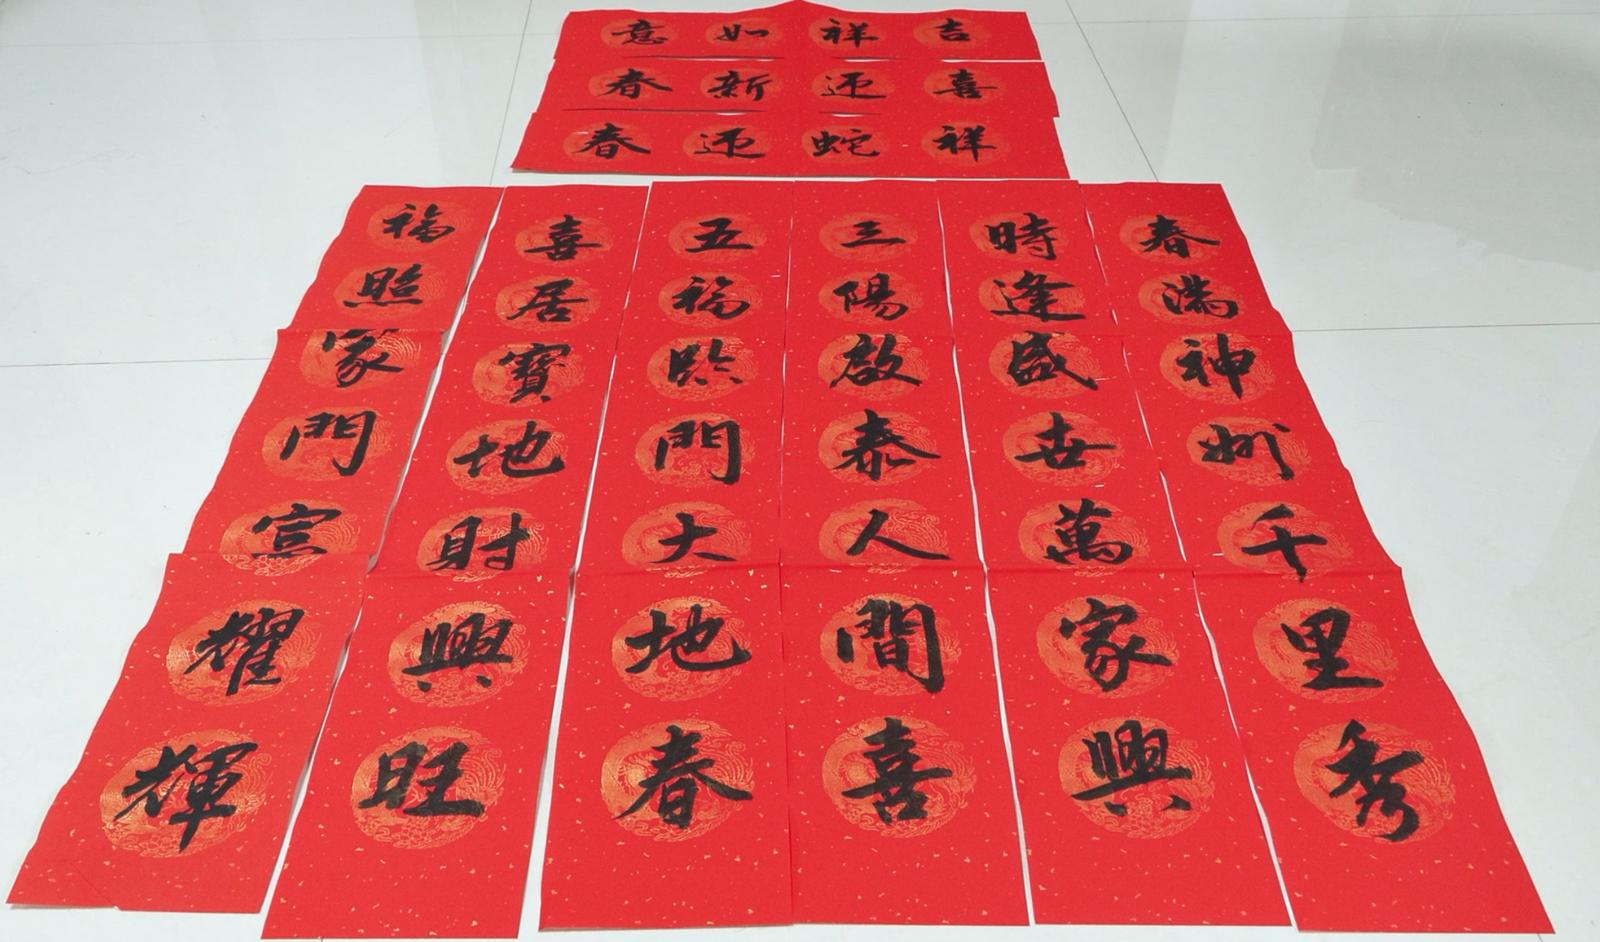 吉祥如意
喜迎新春
祥蛇迎春
春滿神州千里秀
時逢盛世萬家興
三陽啟泰人間喜
五福臨門大地春
喜居寶地財興旺
福照家門耀輝